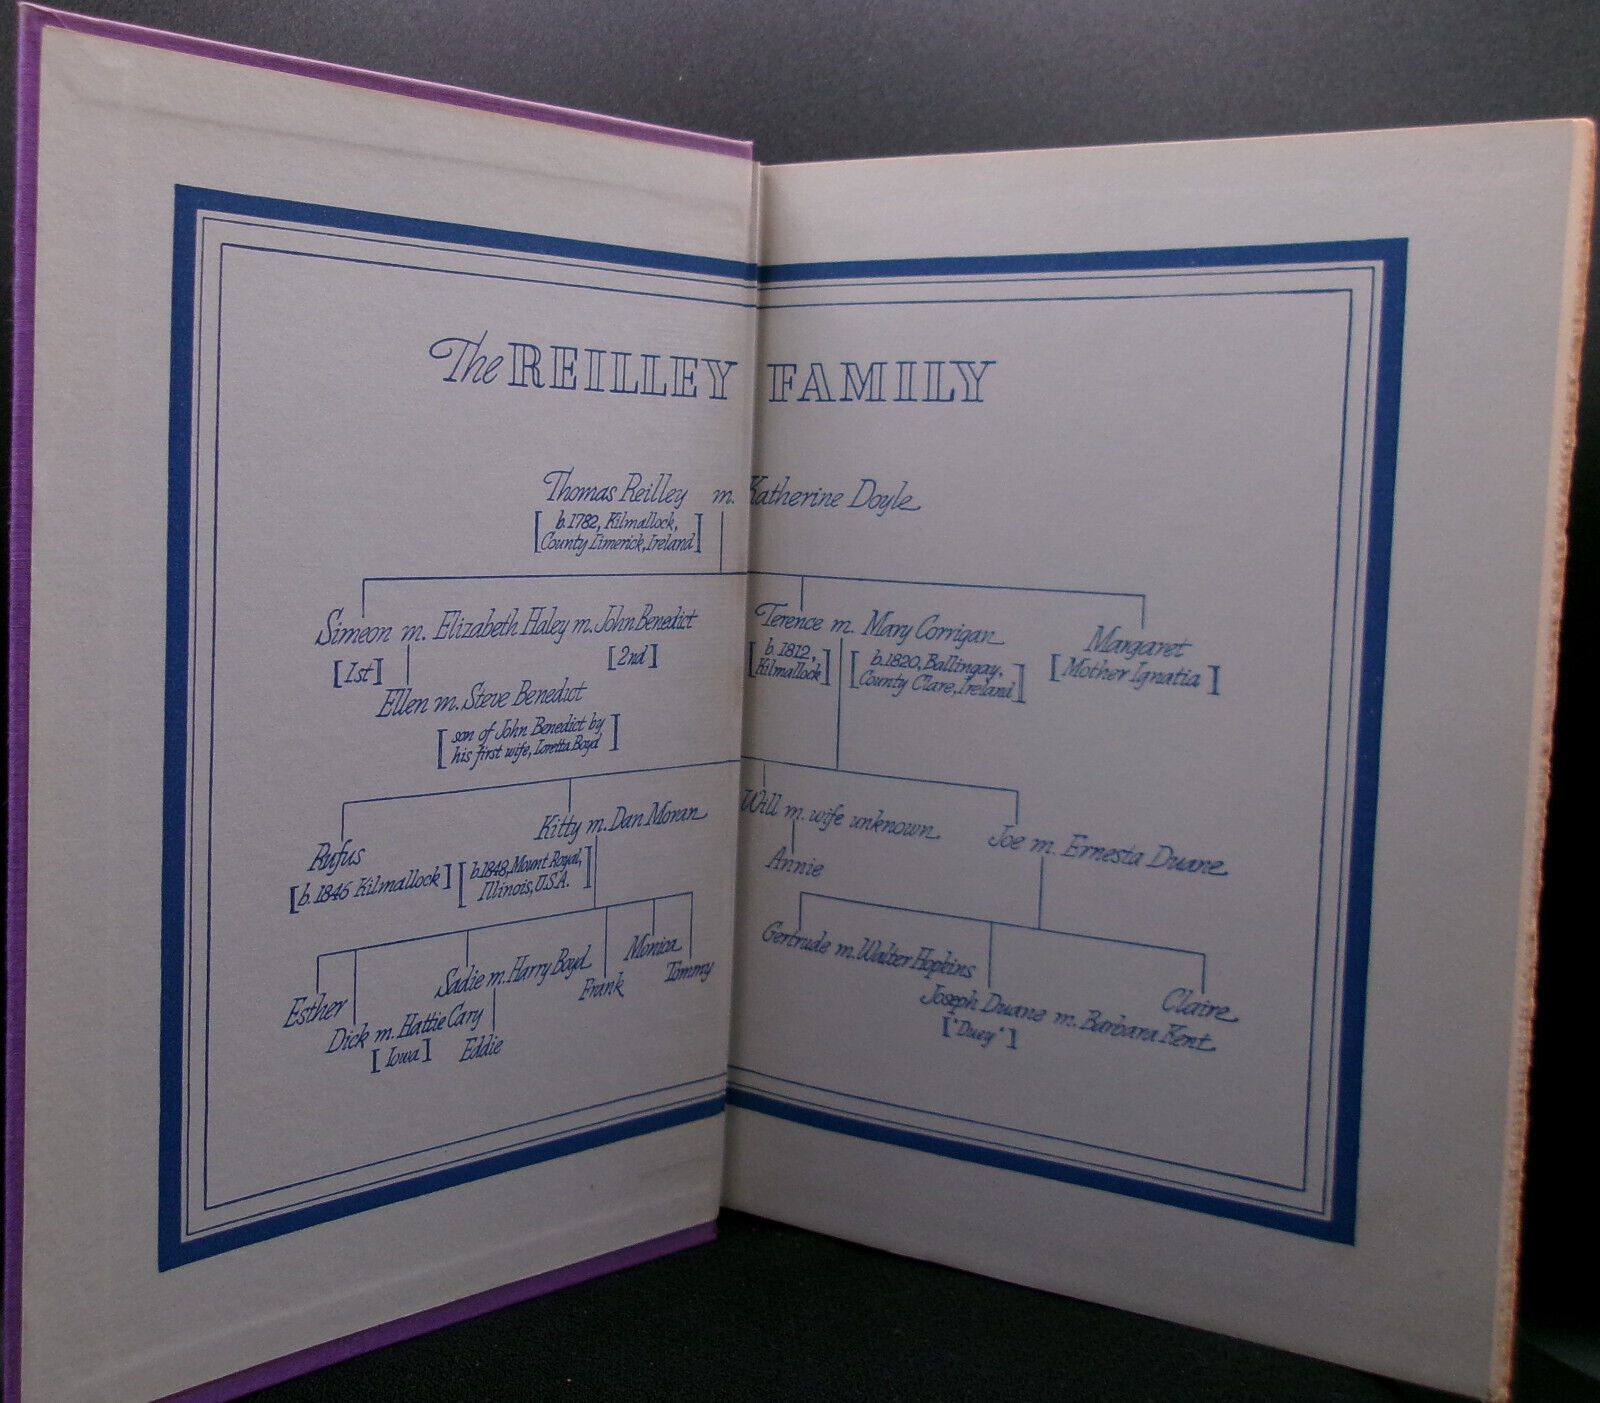 The REILLEY FAMILY
Thomas Reilley m. Katherine Doyle
[b. 1782, Kilmallock,
County Limerick, Ireland]
Simeon m. Elizabeth Haley m. John Benedict
[1st] [2nd]
Terence m. Mary Corrigan
[b. 1812,
Kilmallock]
[b. 1820, Ballingay,
County Clare, Ireland]
Margaret
[Mother Ignatia]
Ellen m. Steve Benedict
[son of John Benedict by
his first wife, Loretta Boyd]
Rufus
[b. 1846 Kilmallock]
Kitty m. Dan Moran
[b. 1848, Mount Royal,
Illinois, U.S.A.]
Will m. wife unknown
Annie
Joe m. Ernesta Duane
Esther
Dick m. Hattie Cary
[Iowa]
Sadie m. Harry Boyd
Eddie
Frank
Monica
Tommy
Gertrude m. Walter Hopkins
Joseph Duane m. Barbara Kent
["Duey"]
Claire